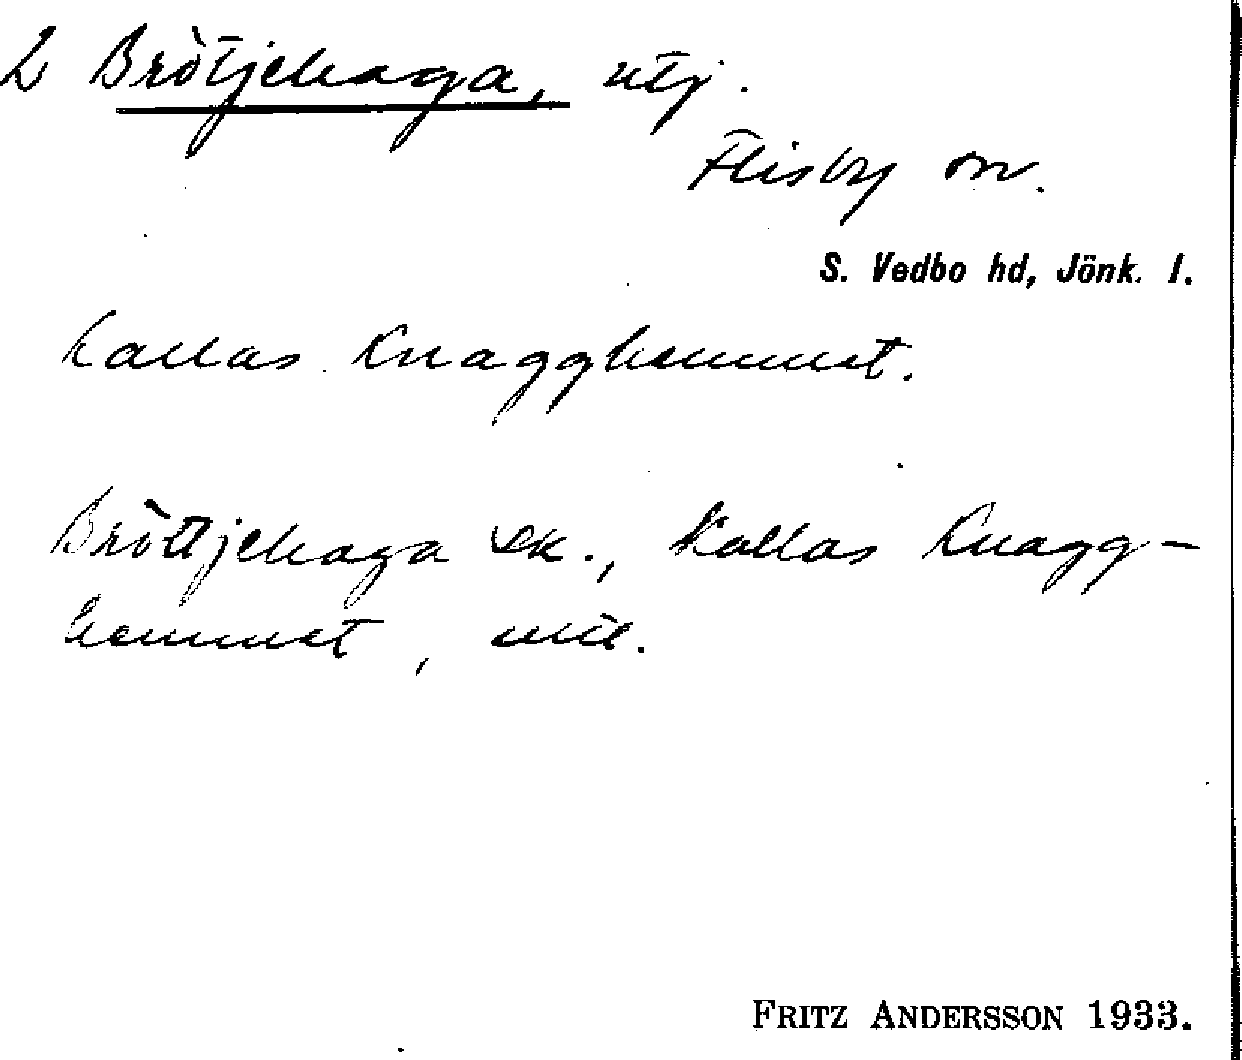 2 Brötjehaga, utj.
Flisby sn.
S. Vedbo hd, Jönk. l.
Kallas Knagghemmet.
Bröttjehaga sk., Kallas Knagg-
hemmet, mtl.
FRITZ ANDERSSON 1933.